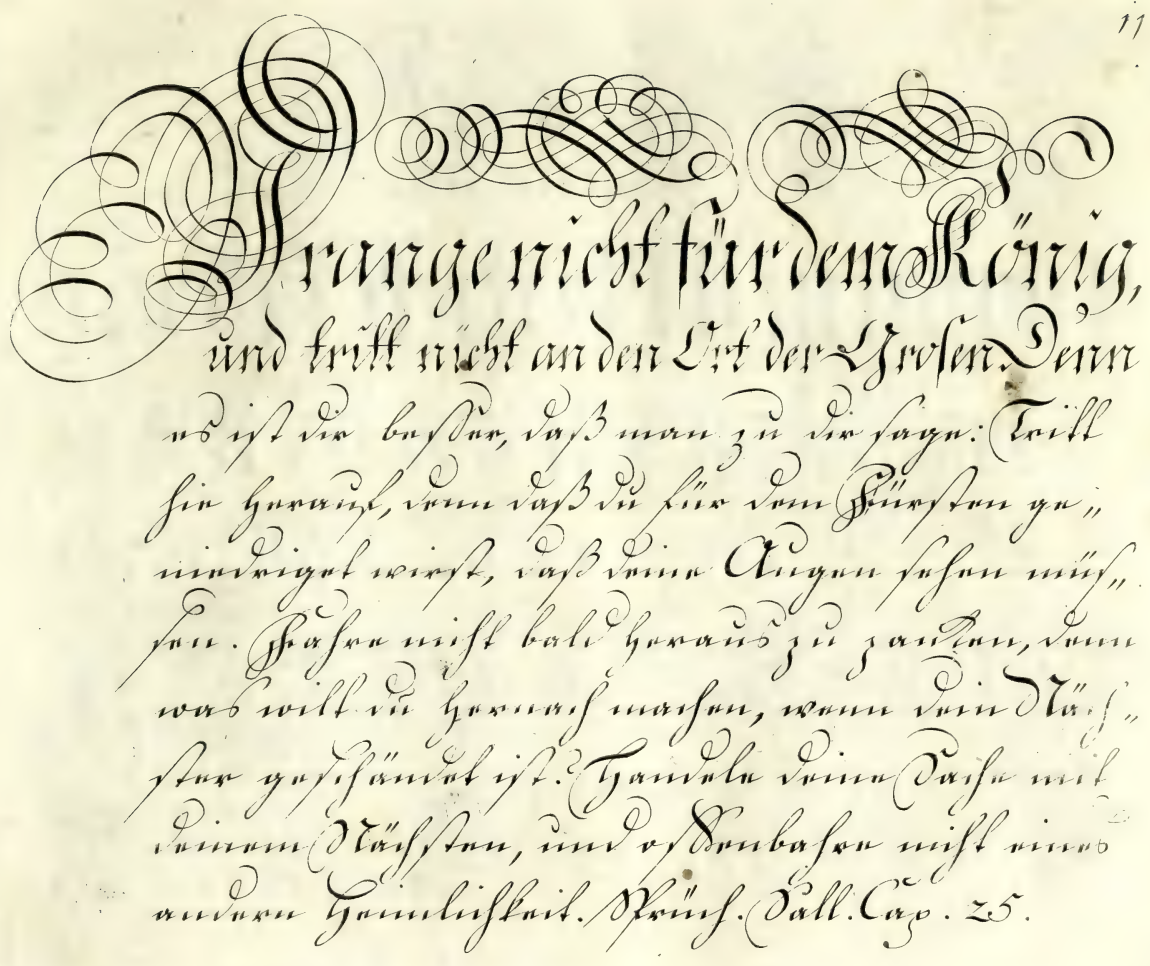 11
Prange nicht für dem König,
und tritt nicht an den Ort der Grosen Denn
es ist dir besser, daß man zu dir sage: Tritt
hie herauf, denn daß du für dem Fürsten ge„
niedriget wirst, daß deine Augen sehen müs„
sen. Fahre nicht bald heraus zu zancken, denn
was wilt du hernach machen, wenn dein Näch„
ster geschändet ist? Handele deine Sache mit
deinem Nächsten, und offenbahre nicht eines
andern Heimlichkeit. Sprüch. Sall. Cap. 25.